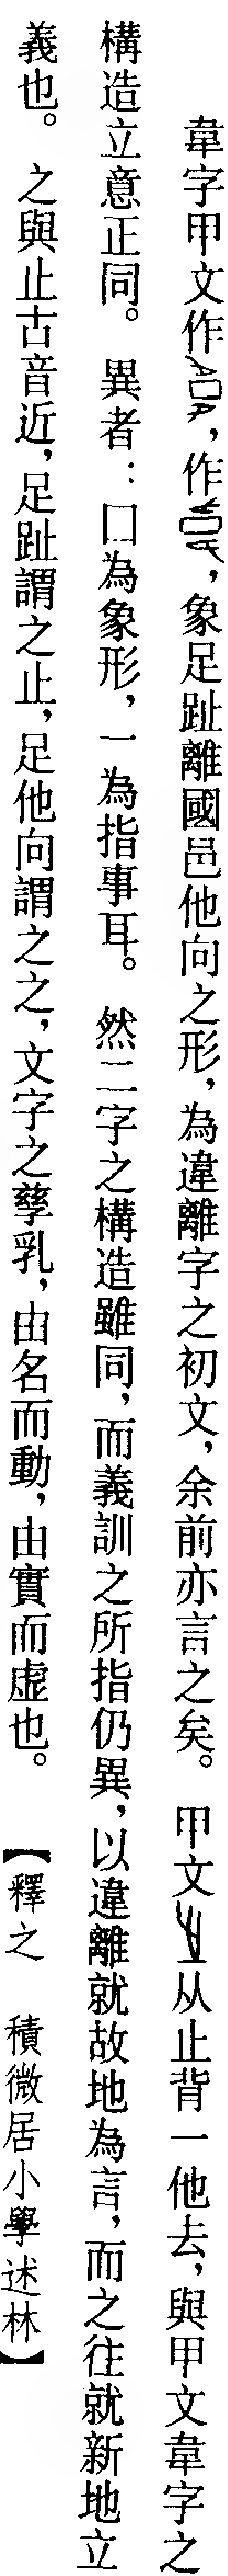 韋字甲文作，作，象足趾離國邑他向之形，為違離字之初文，余前亦言之矣。　甲文从止背一他去，與甲文韋字之
構造立意正同。　異者：囗為象形，一為指事耳。　然二字之構造雖同，而義訓之所指仍異，以違離就故地為言，而之往就新地立
義也。　之與止古音近，足趾謂之止，足他向謂之之，文字之孳乳，由名而動，由實而虛也。　【釋之　積微居小學述林】